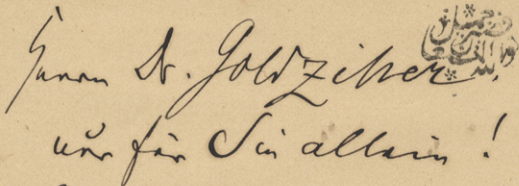 Herrn Dr. Goldziher.
nur für Sie allein!